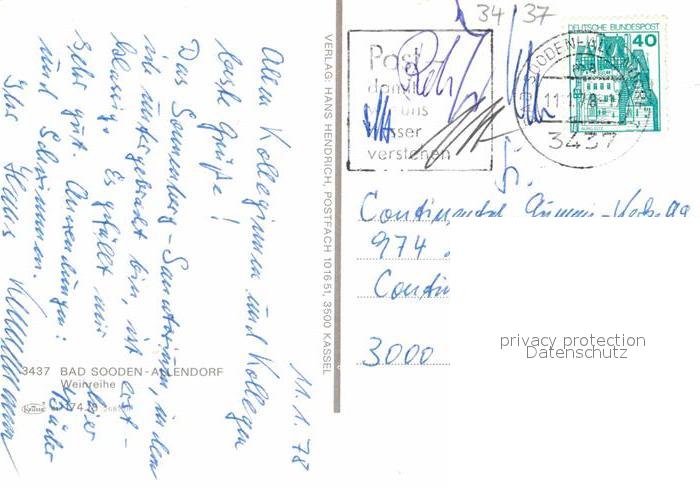 34 37
DEUTSCHE BUNDESPOST
40
Post
damit
uns
besser
verstehen
SOODEN-ALLENDORF
11.1.78
3437
11.1.78
Allen Kolleginnen und Kollegen
beste Grüße!
Das Sonnenberg-Sanatorium, in dem
ich untergebracht bin, ist erst-
klassig. Es gefällt mir hier
sehr gut. Anwendungen: Bäder
und Schwimmen.
Ihr Hans
VERLAG: HANS HENDRICH, POSTFACH 101651, 3500 KASSEL
Continental Gummi-Werke AG
974
Contin
3000
privacy protection
Datenschutz
3437 BAD SOODEN-ALLENDORF
Weinreihe
Krüger